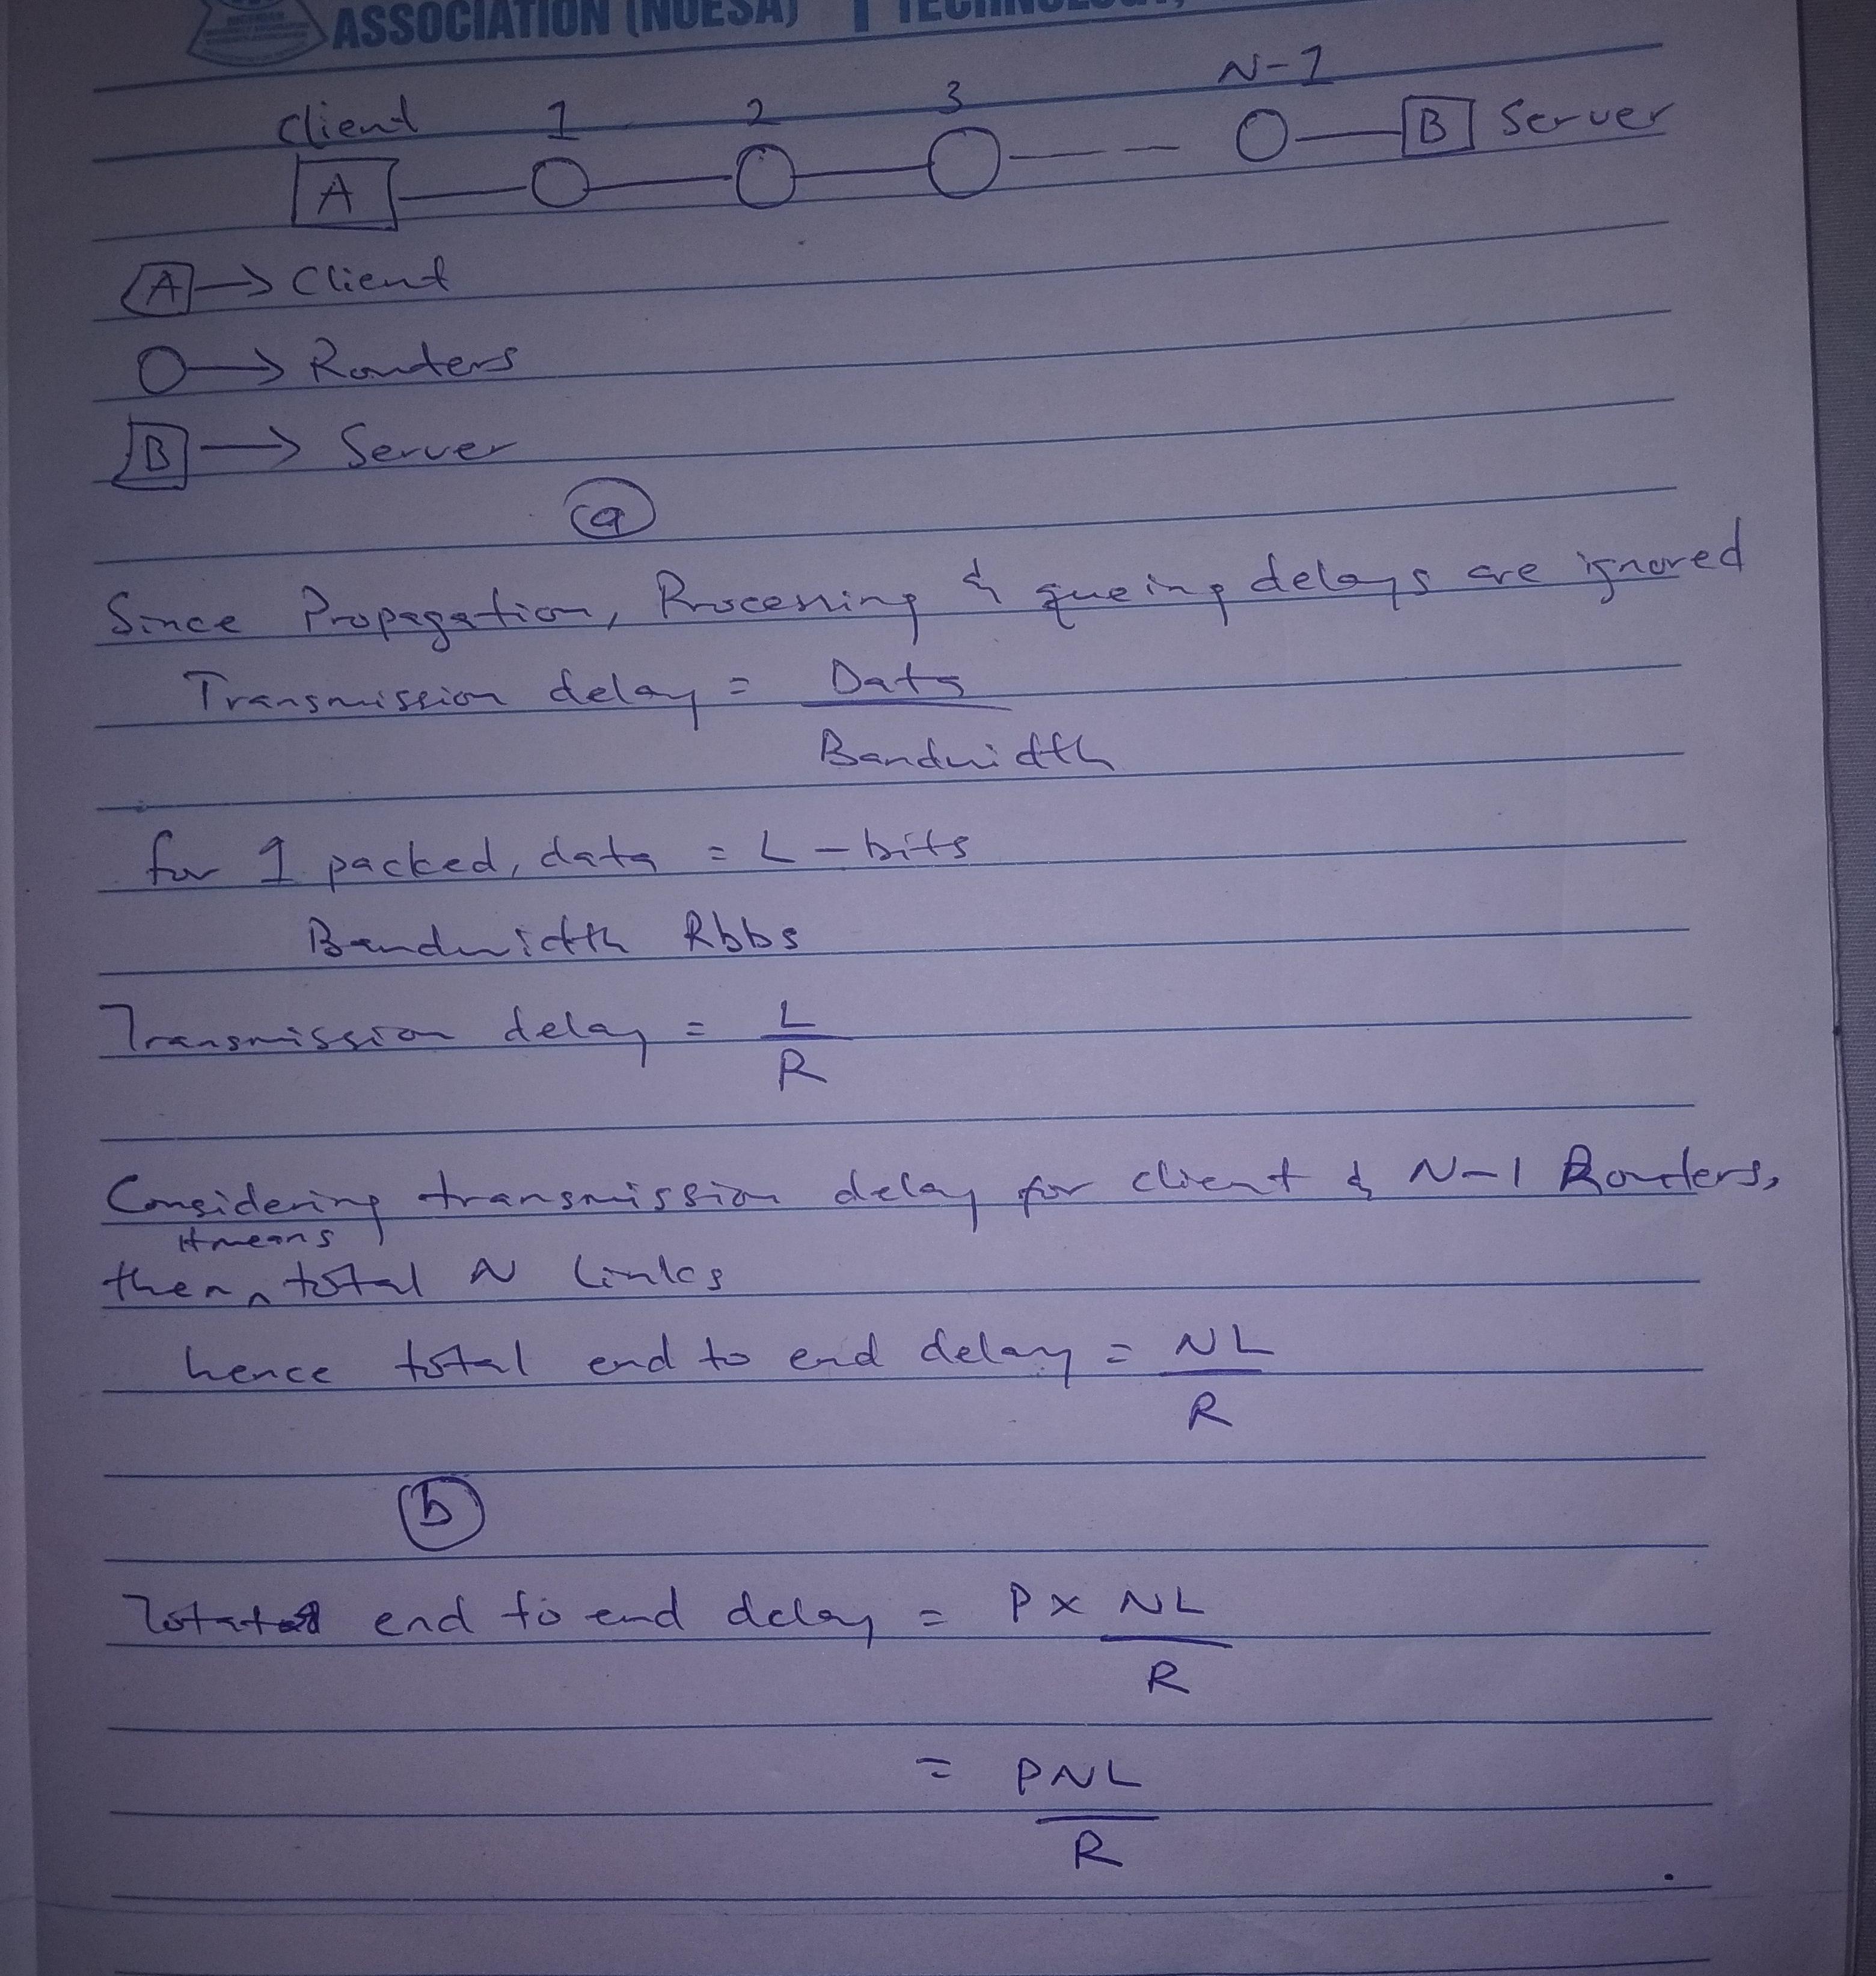 ASSOCIATION (NUESA)
N-1
Client 1 2 3
A B Server
A → Client
O → Routers
B → Server
a
Since Propagation, Processing & queing delays are ignored
Transmission delay = Data
Bandwidth
for 1 packed, data = L - bits
Bandwidth Rbbs
Transmission delay = L
R
Considering transmission delay for client & N-1 Routers,
it means
then ^ total N links
hence total end to end delay = NL
R
b
end to end delay = P x NL
R
= PNL
R